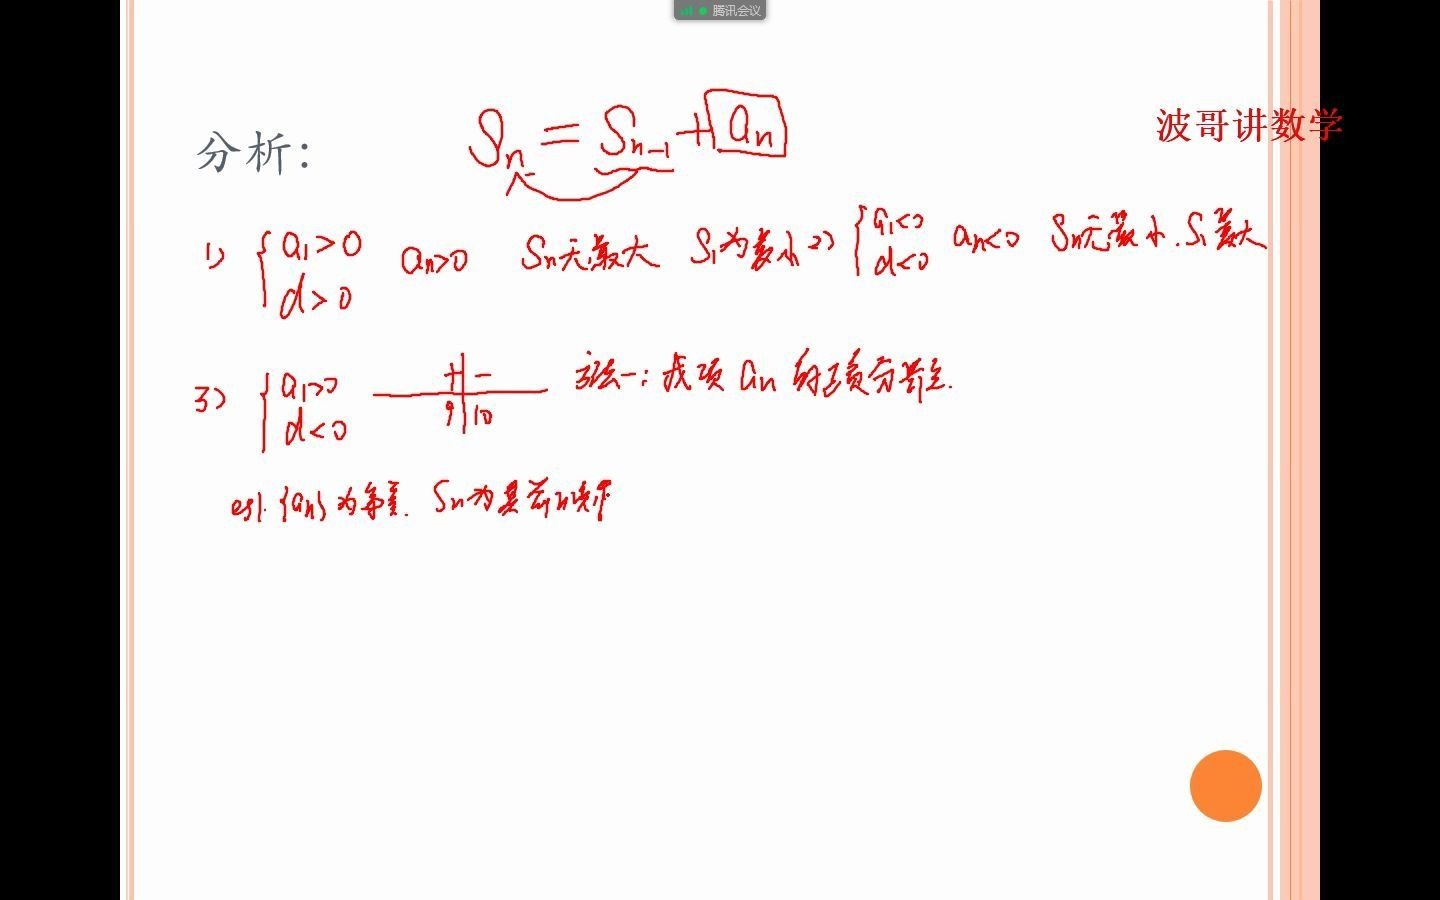 腾讯会议
波哥讲数学
分析：
Sn = Sn-1 + an
1) { a1>0 d>0 an>0 Sn无最大 S1为最小 2) { a1<0 d<0 an<0 Sn无最小. S1最大
3) { a1>0 d<0 + - 9 10 方法一: 找项 an 的正负分界点.
eg1. {an} 为等差. Sn为其前n项和